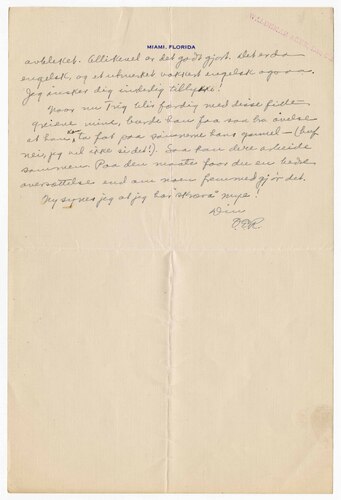 MIAMI, FLORIDA
avbleket. Allikevel er det godt gjort. Det er da
engelsk, og et utmerket vakkert engelsk ogsaa.
Jeg ønsker dig inderlig tillykke!
Naar nu Tryg blir færdig med disse
greiene mine, burde han faa saa bra øvelse
at han kan ta fat paa sønnene hans gamel - (huf
nei, jeg vil ikke si det!). Saa kan dere arbeide
sammen. Paa den maate faar du en bedre
oversættelse end om noen fremmed gjør det.
Ny synes jeg at jeg har "skrævet" mye!
Din
O.E.R.